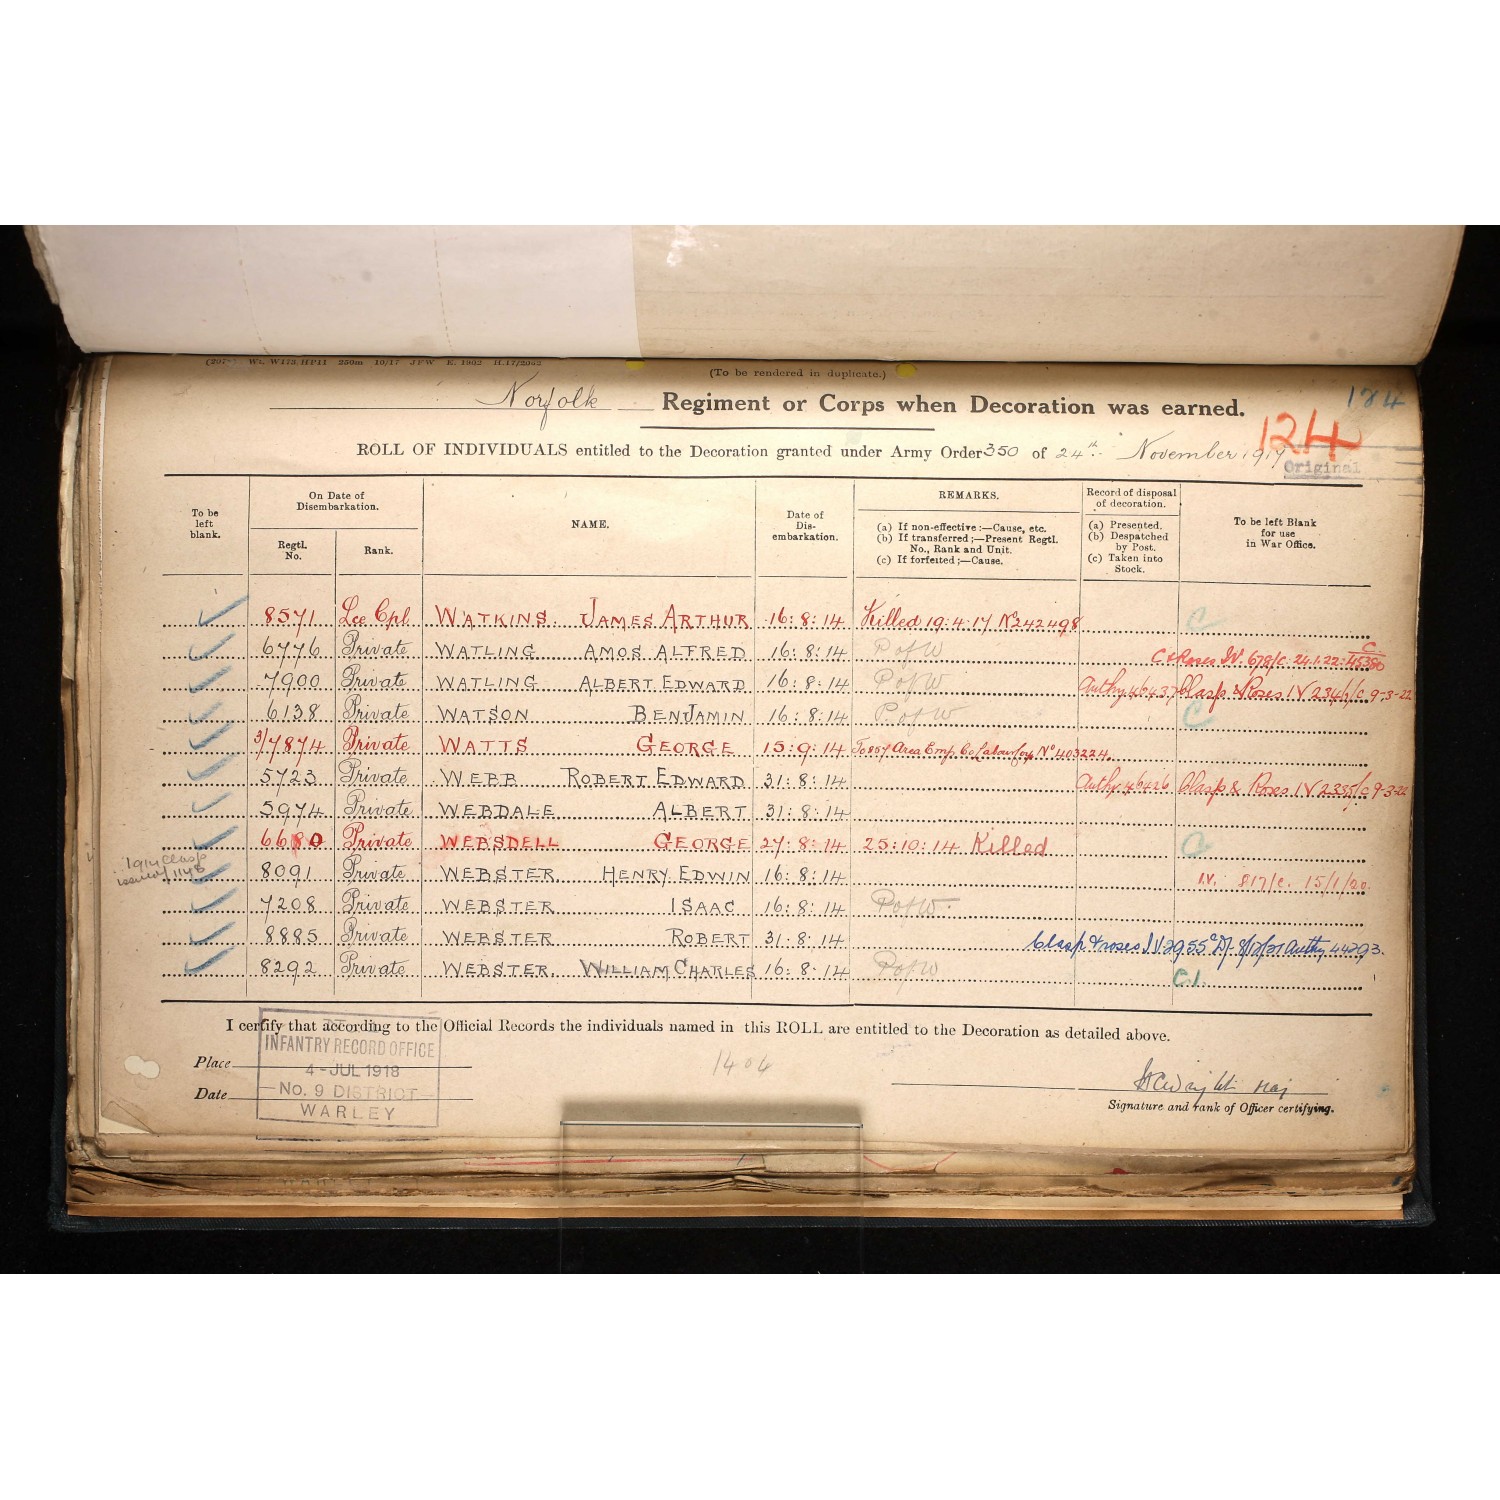 (To be rendered in duplicate.)
Norfolk Regiment or Corps when Decoration was earned.
184
124
ROLL OF INDIVIDUALS entitled to the Decoration granted under Army Order 350 of 24th November 1917
Original
To be left blank.
On Date of Disembarkation.
Regtl. No.
Rank.
NAME.
Date of Disembarkation.
REMARKS.
(a) If non-effective:—Cause, etc.
(b) If transferred;—Present Regtl. No., Rank and Unit.
(c) If forfeited;—Cause.
Record of disposal of decoration.
(a) Presented.
(b) Despatched by Post.
(c) Taken into Stock.
To be left Blank for use in War Office.
8571 Lce Cpl WATKINS. JAMES ARTHUR 16:8:14 Killed 19.4.17 No 242498 C
6776 Private WATLING AMOS ALFRED 16:8:14 P of W C & Roses IV. 678/c. 24.1.22. C. 45380
7900 Private WATLING ALBERT EDWARD 16:8:14 P of W Authy 46437 Clasp & Roses IV 234/c 9-3-22
6138 Private WATSON BENJAMIN 16:8:14 P of W C
3/7874 Private WATTS GEORGE 15:9:14 To 857 Area Emp Co Labour Corp No 403224
5723 Private WEBB ROBERT EDWARD 31:8:14 Authy 46426 Clasp & Roses IV 2385/c 9-3-22
5974 Private WEBDALE ALBERT 31:8:14
6680 Private WEBSDELL GEORGE 27:8:14 25:10:14 Killed C
1914 Clasp issued 1148
8091 Private WEBSTER HENRY EDWIN 16:8:14 I.V. 817/c. 15/1/20.
7208 Private WEBSTER ISAAC 16:8:14 P of W.
8885 Private WEBSTER ROBERT 31:8:14 Clasp & roses I.V. 2955 Authy 44293.
8292 Private WEBSTER. WILLIAM CHARLES 16:8:14 P of W C.I.
I certify that according to the Official Records the individuals named in this ROLL are entitled to the Decoration as detailed above.
Place
Date
INFANTRY RECORD OFFICE
4-JUL 1918
No. 9 DISTRICT
WARLEY
1404
Maj
Signature and rank of Officer certifying.